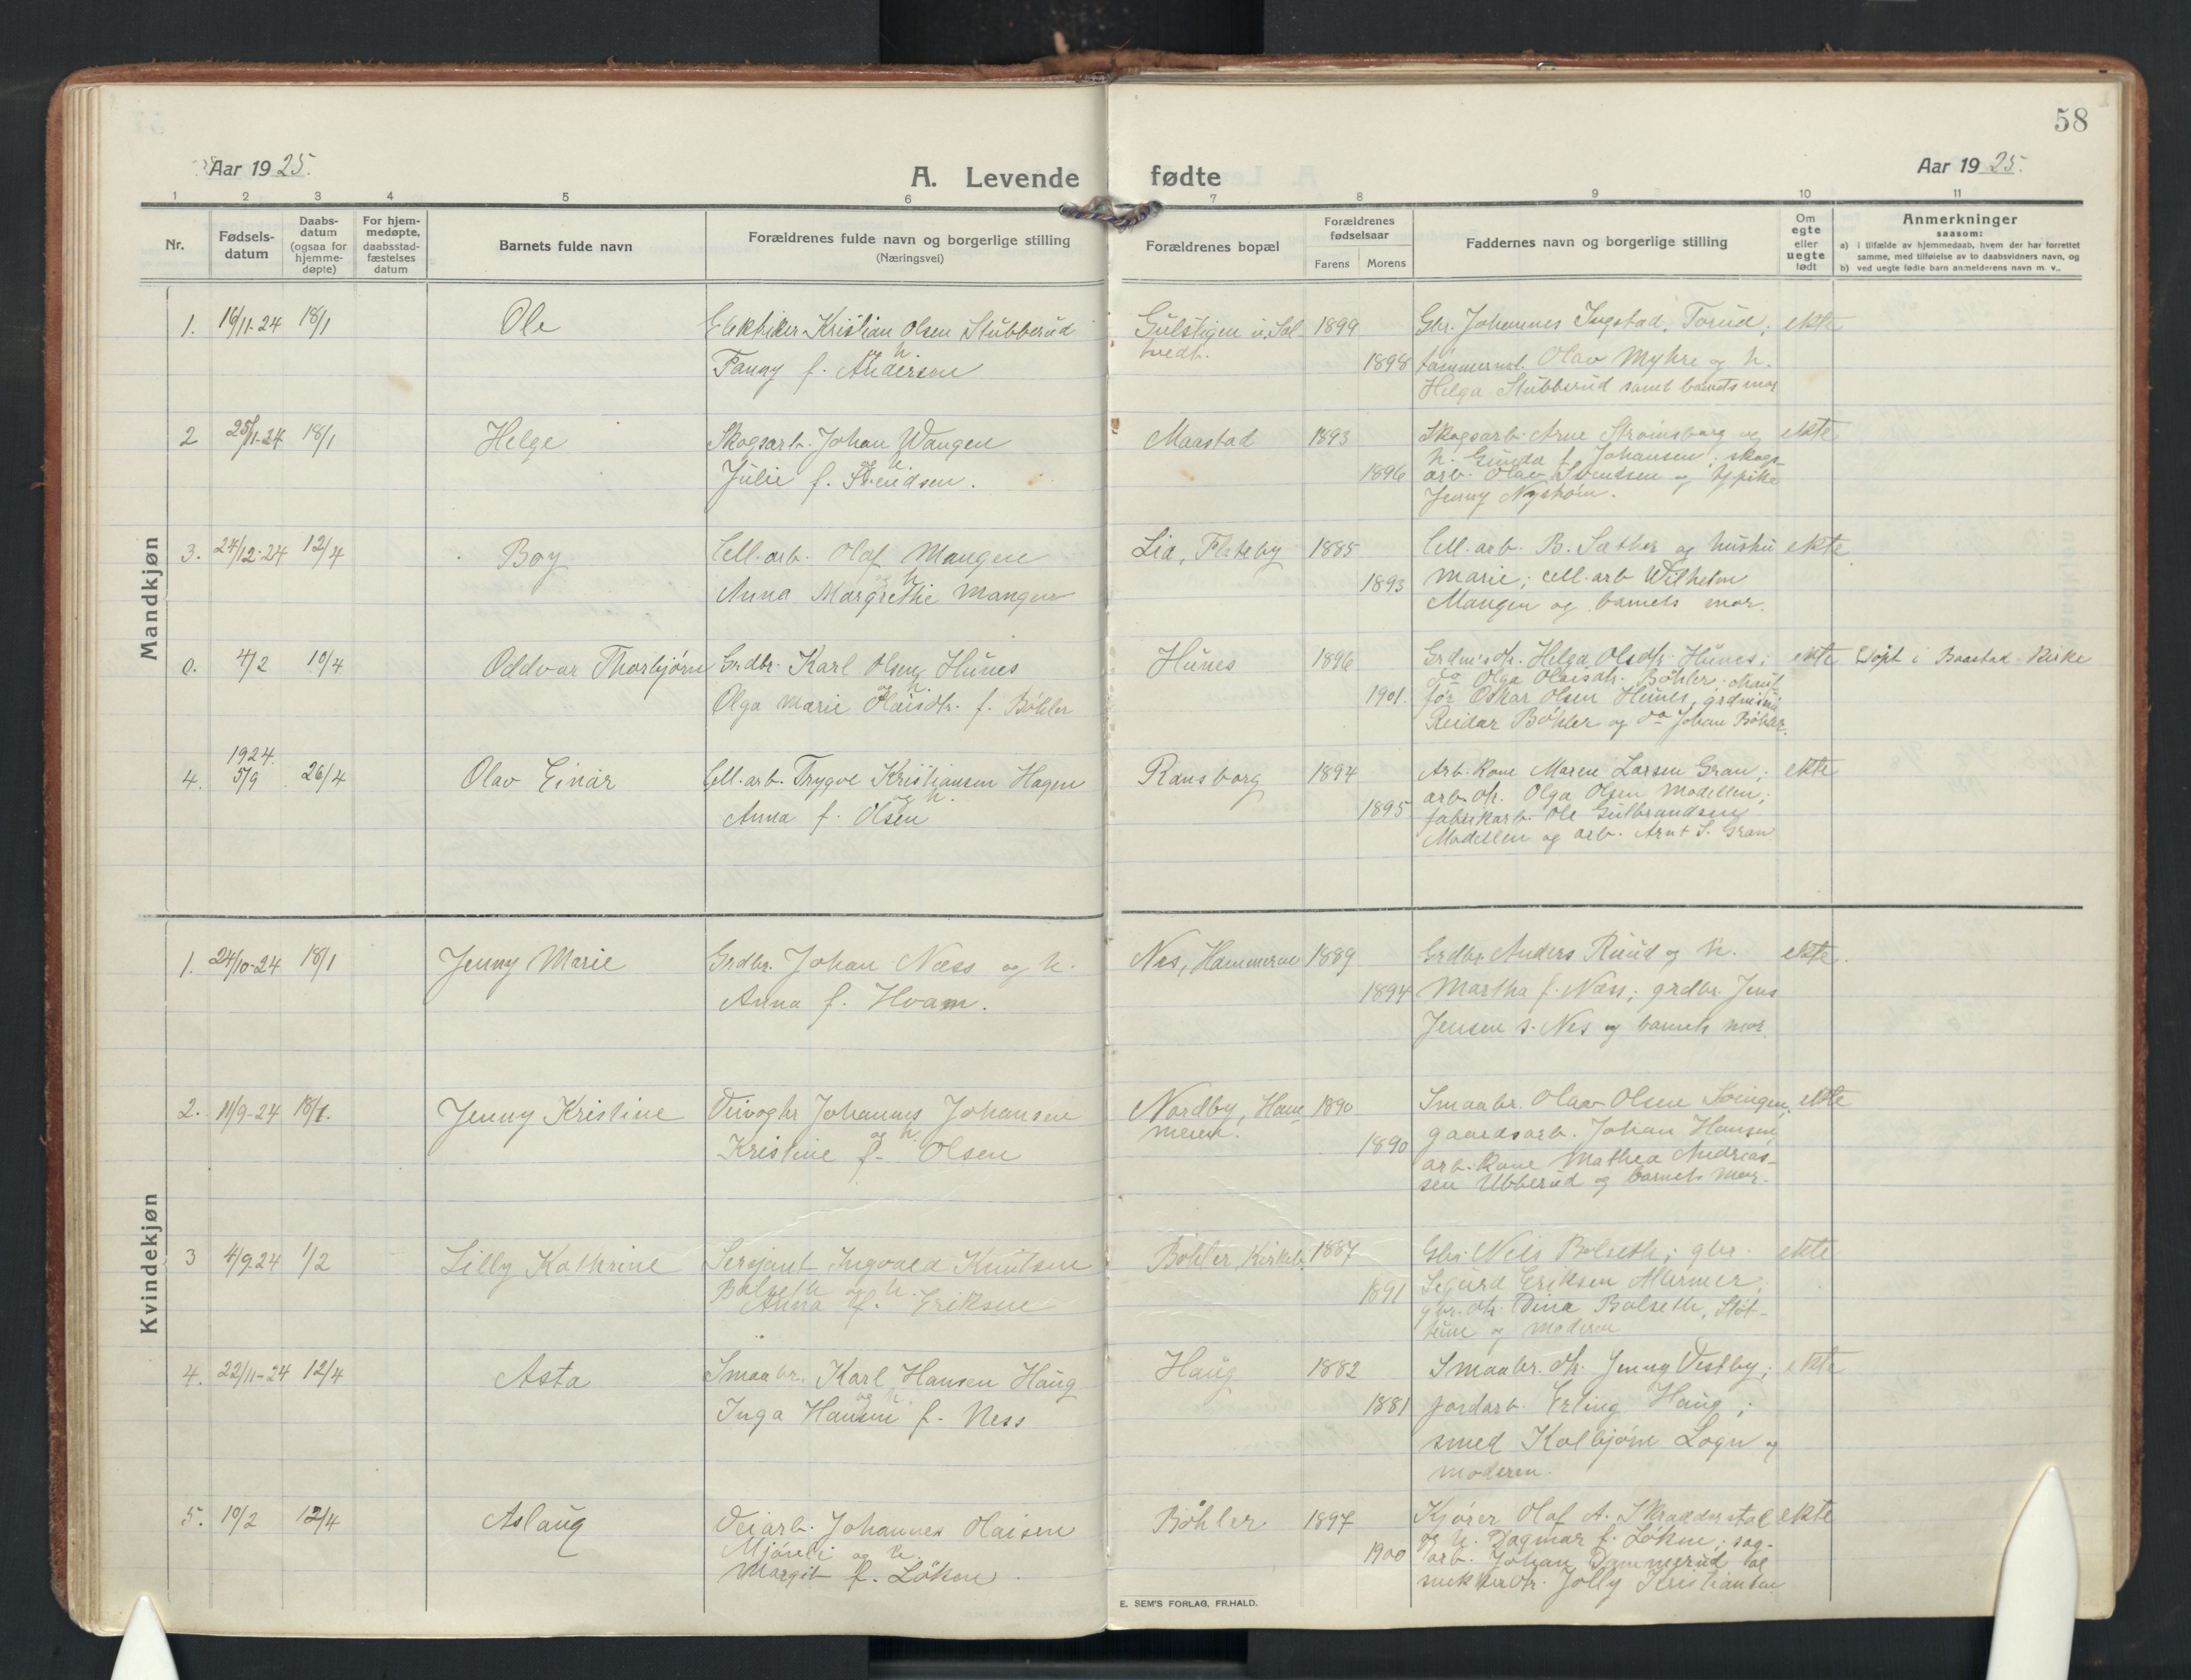 58
Aar 1925.
A. Levende fødte
Aar 1925.
1 2 3 4 5 6 7 8 9 10 11
Nr.
Fødsels-
datum
Daabs-
datum
(ogsaa for
hjemme-
døpte)
For hjem-
medøpte,
daabsstad-
fæstelses
datum
Barnets fulde navn
Forældrenes fulde navn og borgerlige stilling
(Næringsvei)
Forældrenes bopæl
Forældrenes
fødselsaar
Farens Morens
Faddernes navn og borgerlige stilling
Om
egte
eller
uegte
født
Anmerkninger
saasom:
a) i tilfælde av hjemmedaab, hvem der har forrettet
samme, med tilføielse av to daabsvidners navn, og
b) ved uegte fødte barn anmelderens navn m. v..
Mandkjøn
1. 16/11-24 18/1 Ole
Elektriker Kristian Olsen Stubberud
og h.
Fanny f. Andersen
1899
1898
Gbr. Johannes Ingstad, Torud;
tømmerm. Olav Myhre og h.
Helga Stubberud samt barnets mor
ekte
2 25/11-24 18/1 Helge
Skogsarb. Johan Wangen
og h.
Julie f. Svendsen.
Maastad 1893
1896
Skogsarb. Arne Strømsborg og
h. Gunda f. Johansen; skogs-
arb. Olav Svendsen og tj.pike
Jenny Nystrøm.
ekte
3. 24/12-24 12/4 Boy
Cell.arb. Olaf Mangen
og h.
Anna Margrethe Mangen
Lia, Flateby 1885
1893
Cell.arb. B. Sæther og hustru
Marie; cell.arb Wilhelm
Mangen og barnets mor.
ekte
0. 4/2 10/4 Oddvar Thorbjørn
Grdbr. Karl Olsen Hunes
og h.
Olga Marie Olaisdtr. f. Bøhler
Hunes 1896
1901.
Grdm.dtr. Helga Olsdtr. Hunes;
do Olga Olaisdtr. Bøhler;
før Oskar Olsen Hunes, grdm.
Reidar Bøhler og do Johan Bøhler.
ekte
Døpt i Baastad Kirke
4. 1924. 5/9 26/4 Olav Einar
Cell.arb. Trygve Kristiansen Hagen
og h.
Anna f. Olsen
Ransborg 1894
1895
Arb.kone Maren Larsen Gran;
arb.dtr. Olga Olsen Modellen;
fabrikarb. Ole Gulbrandsen
Modellen og arb. Arnt S. Gran
ekte
Kvindekjøn
1. 24/10-24 18/1 Jenny Marie
Grdbr. Johan Næss og h.
Anna f. Hvam.
Nes, Hammeren 1889
1894
Grdbr. Anders Ruud og h.
Martha f. Næss; grdbr. Jens
Jensen s. Nes og barnets mor.
ekte.
2. 11/9-24 18/1. Jenny Kristine
Veivogtr Johannes Johansen
og h.
Kristine f. Olsen
Nordby, Ham-
meren. 1890
1890
Smaabr. Olav Olsen
gaardsarb. Johan Hansen,
arb.kone Mathea Andreas-
sen Ubberud og barnets mor.
ekte
3 4/9 24 1/2 Lilly Kathrine
Sersjant Ingvald Knutsen
Bolseth og h.
Anna f. Eriksen
Bøhler, Kirkeb. 1887
1891
Gbr. Nils Bolseth; gbr.
Sigurd Eriksen
gbr.dtr. Dina Bolseth, Støt-
tum og moderen
ekte
4. 22/11-24 12/4 Asta
Smaabr. Karl Hansen Haug
og h.
Inga Hansen f. Ness
Haug 1882
1881
Smaabr.dtr. Jenny Vestby;
jordarb. Erling Haug;
smed Kolbjørn Logn og
moderen.
ekte
5. 10/2 12/4 Aslaug
Veiarb. Johannes Olaisen
Mjørli og h.
Margit f. Løken.
Bøhler 1897
1900
Kjører Olaf A. Skradderstal
og h. Dagmar f. Løken; sag-
arb. Johan Dammerud og
snekkerdtr. Jolly Kristiansen
ekte
E. SEM'S FORLAG, FR.HALD.